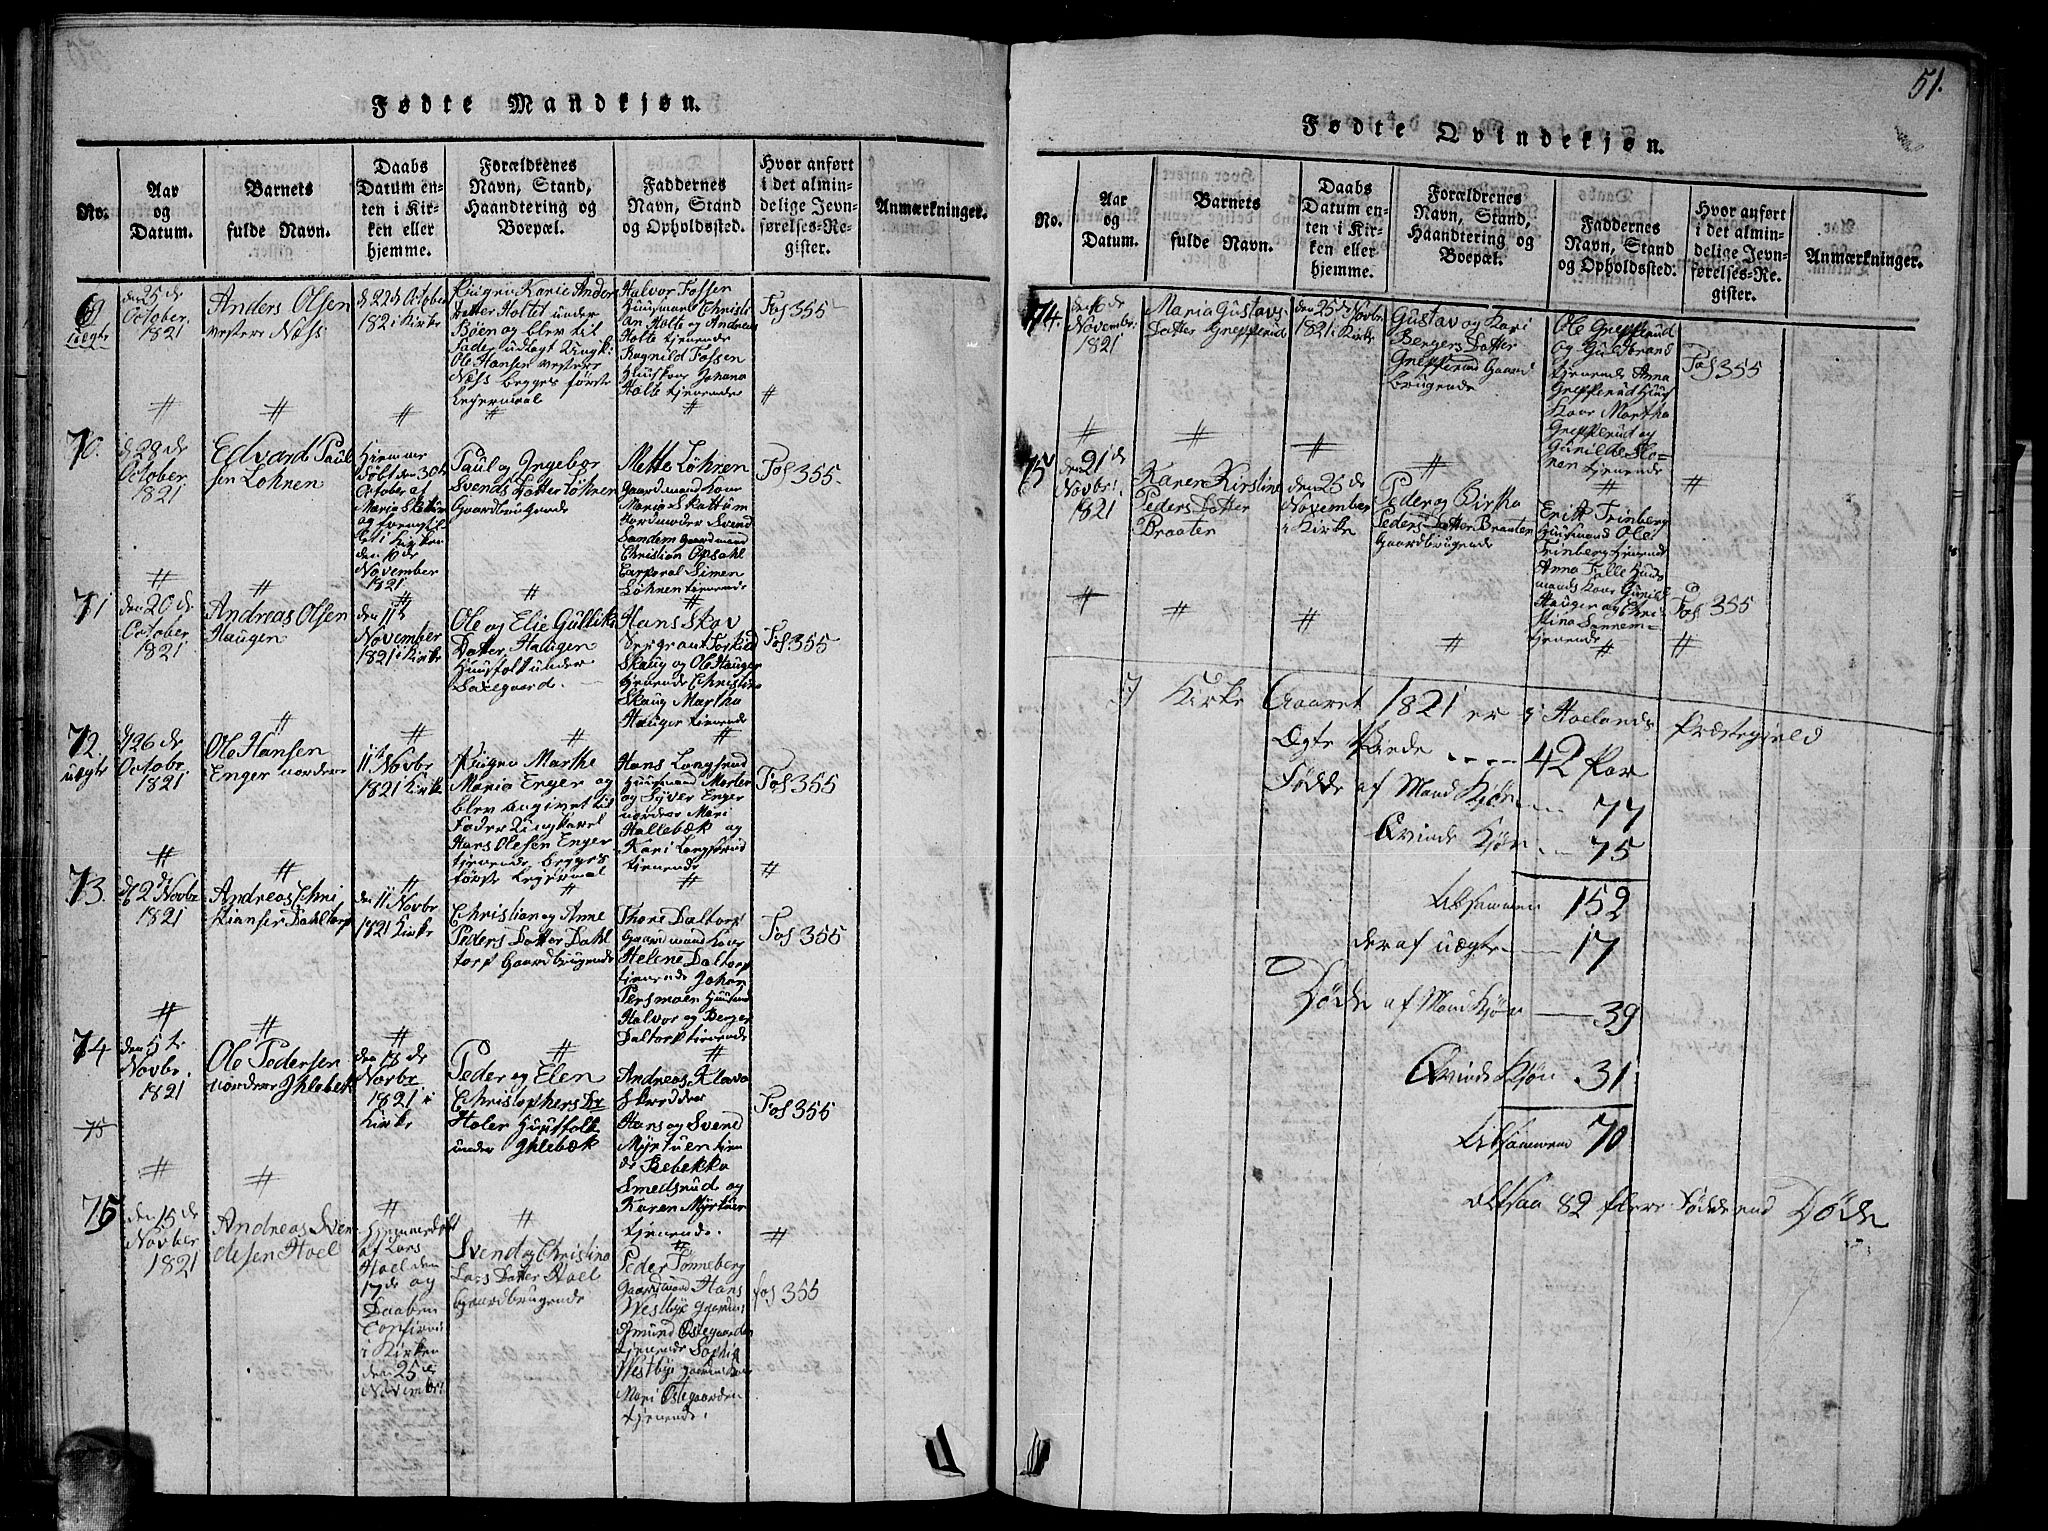 51.
Fødte Mandkjøn.
No.
Aar
og
Datum.
Barnets
fulde Navn.
Daabs
Datum en-
ten i Kir-
ken eller
hjemme.
Forældrenes
Navn, Stand,
Haandtering og
Boepæl.
Faddernes
Navn, Stand
og Opholdssted.
Hvor anført
i det almin-
delige Jevn-
førelses-Re-
gister.
Anmærkninger.
69
uægte
den 25 de
October
1821
Anders Olsen
vestere Næss
d. 22d October
1821 i Kirke
Pingen Karie Anders
Datter Holtet under
Böen og blev til
Fader udlagt Ungk:
Ole Hansen vestere
Næss begges første
Leiermaal
Halvor Fossen
Huusmand Christi
an Holte og Andreas
Holte tjenende
Ragnild Fossen
Huuskone Johana
Holte tjenende
Fol 355
70.
d. 28 de
October
1821
Edvard Paul
sen Löhnen
Hjemme
döbt den 30te
October af
Maria Skattum
og fremstil
let i Kirken
den
November
1821
Paul og Ingebor
Svends Datter Löhnen
Gaardbrugende
Mette Löhnen
Gaardmand Kone
Maria Skattum
Jordmoder Svend
Sandem Gaardmand
Christian Opsahl
Corporal Simen
Löhnen tjenende
Fol 355
71
den 20 de
October
1821
Andreas Olsen
Haugen
den 11te
November
1821 i Kirke
Ole og Elie Gulliks
Datter Haugen
Huusfolk under
Saxegaard.
Hans Skov
Sergeant Torkild
Skaug og Ole Hauger
tjenende Christina
Skaug Martha
Hauger tjenende
Fol 355
72.
uægte
d. 26 de
October
1821
Ole Hansen
Enger nordere
11te Novbr
1821 Kirke
Pingen Marthe
Maria Enger og
blev angivet til
Fader Ungkarl
Hans Olesen Enger
tjenende begges
første Leiermaal
Hans Langserud
Huusmand Morten
og Syver Enger
nordere Mari
Hallebæk og
Kari Langserud
tjenende
Fol 355
73.
d. 2 d Novbr
1821
Andreas Chri
stiansen Dahltorp
den 11 Novbr
1821 Kirke
Christian og Anne
Peders Datter Dahl
torp Gaardbrugende
Thore Daltorp
Gaardmand Kone
Helene Daltorp
tjenende Johan
Persmoen Huusmd
Halvor og Berger
Daltorp tienende
Fol 355
74
den 5 te
Novbr.
1821
Ole Pedersen
nordere Ihlebek
den 18 de
Novbr.
1821 i
Kirke
Peder og Elen
Christophers Dr
Holen Huusfolk
under Ihlebæk
Andreas Klava
Skredder
Hans og Svend
Myrtuen tien
de Rebekka
Smedsrud og
Karen Myrtuen
tjenende.
Fol 355
75
75
den 15 de
Novber
1821
Andreas Sven
desen Hoel
Hjemmedöbt
af Lars
Hoel den
17 de og
Daaben
Confirm:
i Kirken
den 25 de
November
Svend og Christina
Lars Datter Hoel
Gaardbrugende
Peder Tønneberg
Gaardmand Hans
Westbye Gaardm:
Gmund Østegaarden
tjenende Sophia
Westbye Gaardm: Kone
Mari Østegaarden
tjenende.
Fol 355
Fødte Qvindekjøn.
No.
Aar
og
Datum.
Barnets
fulde Navn.
Daabs
Datum en-
ten i Kir-
ken eller
hjemme.
Forældrenes
Navn, Stand,
Haandtering og
Boepæl.
Faddernes
Navn, Stand
og Opholdssted.
Hvor anført
i det almin-
delige Jevn-
førelses-Re-
gister.
Anmærkninger.
74.
den 16 de
Novembr:
1821
Maria Gustavs
Datter Grepperud
den 25 de Novbr
1821 i Kirke
Gustav og Kari
Bergers Datter
Grepperud Gaard
brugende
Ole Grepperud
og Guldbrand
tjenende Anna
Grepperud Huus
Kone Martha
Grepperud og
Gunilde Slo-
nen tjenende
Fol 355
75
den 21 de
Novbr.
1821
Karen Kirstine
Peders Datter
Braaten
den 25 de
November
i Kirke
Peder og Birtha
Peders Datter Braaten
Gaardbrugende
Eritt Trinberg
Huusmand Ole
Trinberg tjenende
Anna Falle Huus
mands Kone Gunild
Hauger og Chri-
stina Sannem-
tjenende
Fol 355
I Kirke Aaret 1821 er i Høelands Præstegield
Ægte Viede ---- 42 Par
Fødde af Mand Kjøn --- 77
Qvinde Kjøn --- 75
tilsammen 152
deraf uægte --- 17
Døde af Mand Kjøn --- 39
Qvinde Kjøn - 31
tilsammen 70
altsaa 82 flere Fødde end Døde